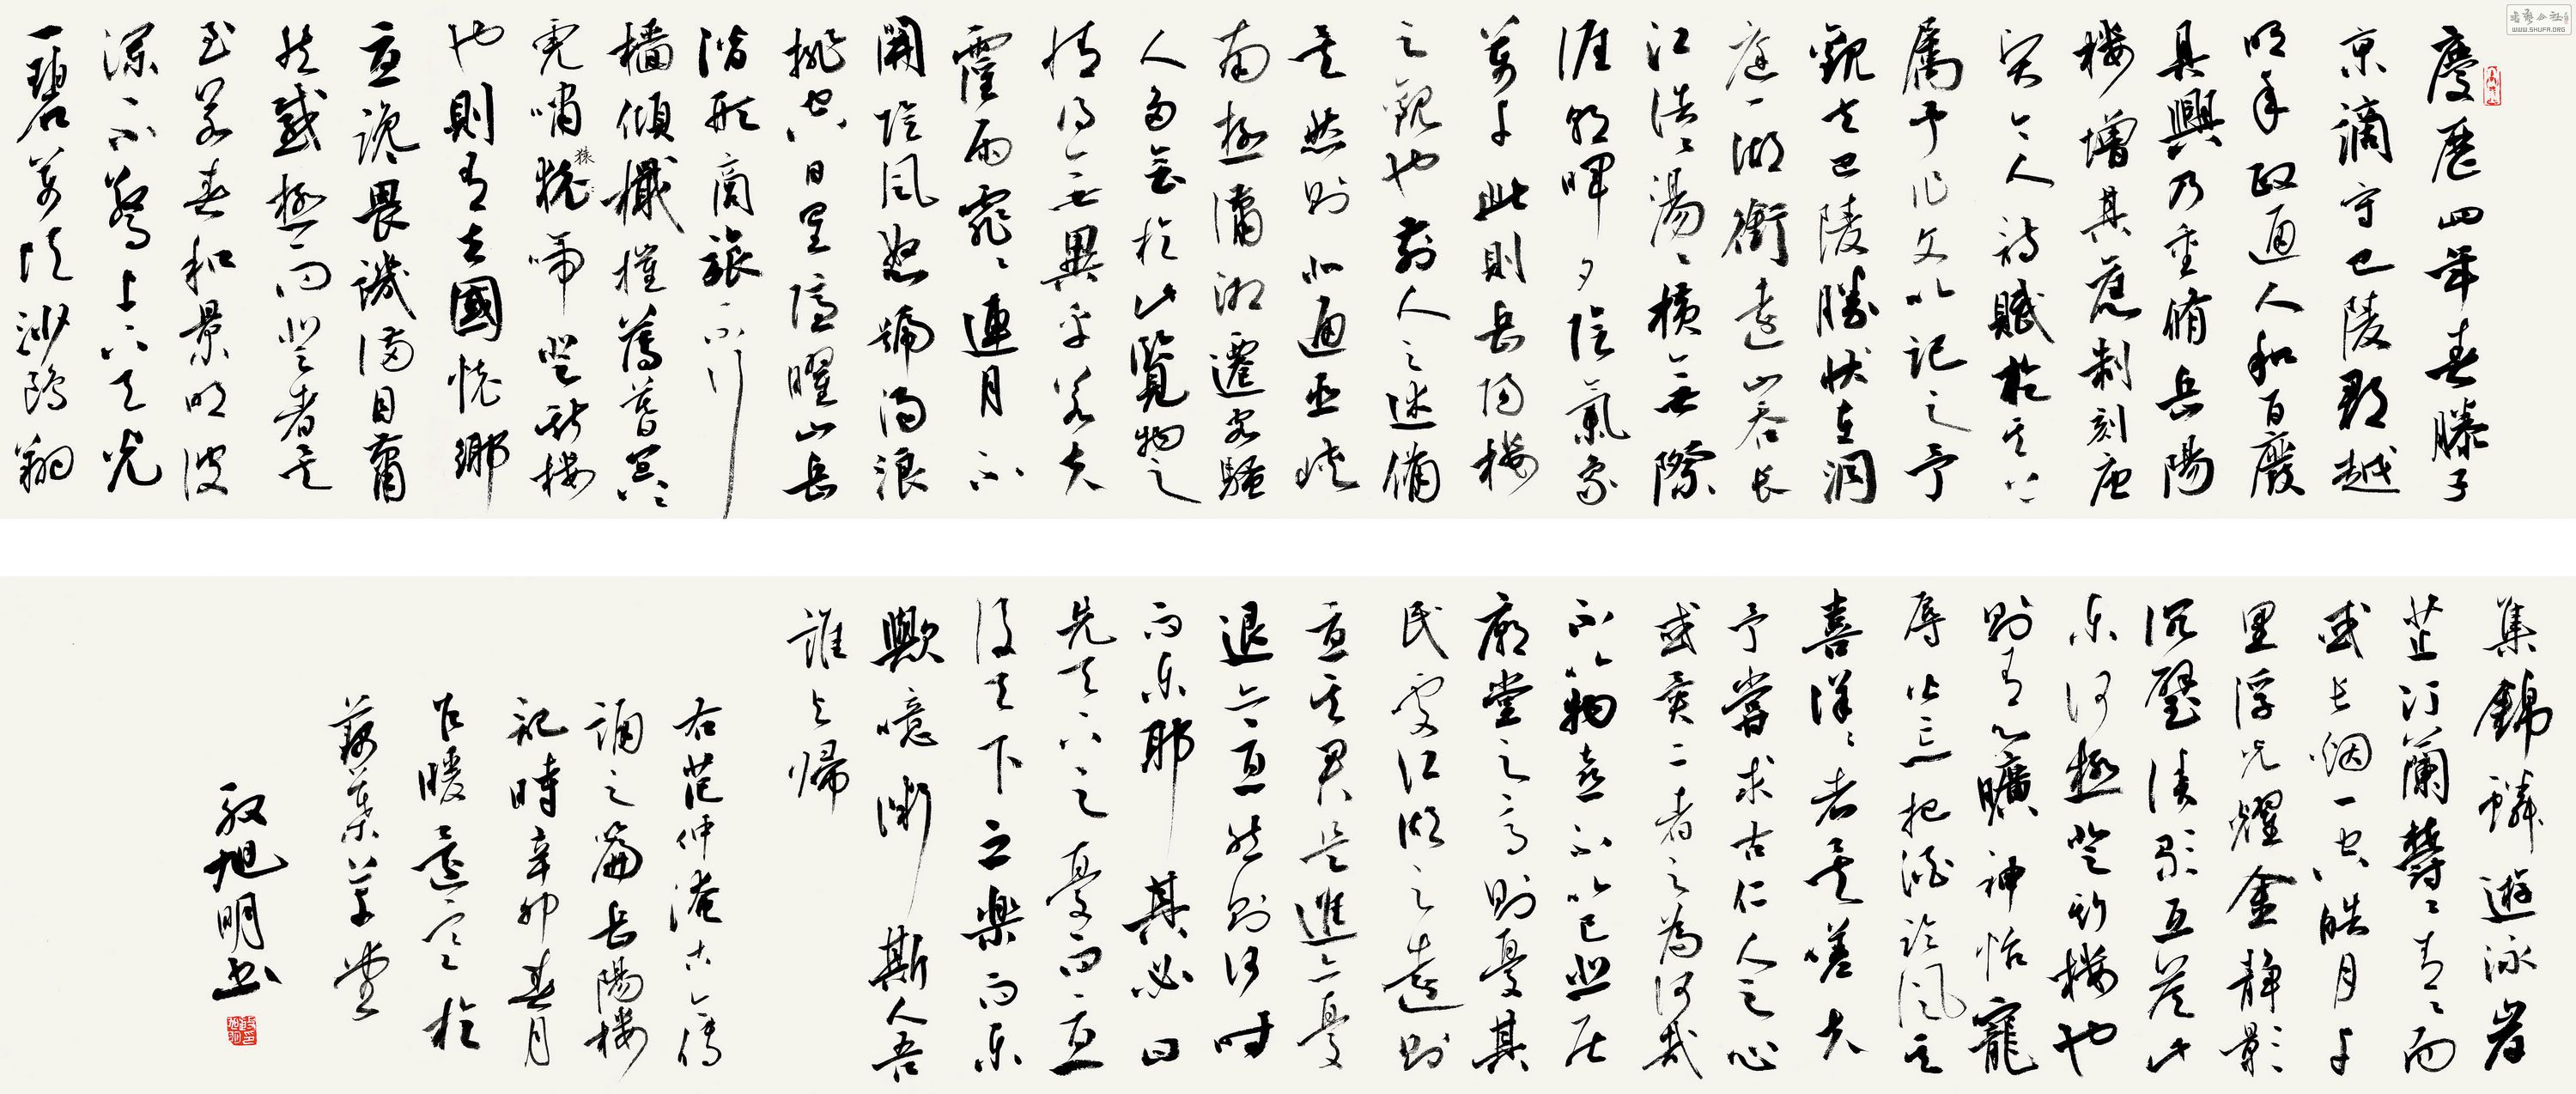 慶曆四年春滕子
京謫守巴陵郡越
明年政通人和百廢
具興乃重脩岳陽
樓增其舊制刻唐
賢今人詩賦於其上
屬予作文以記之予
觀夫巴陵勝狀在洞
庭一湖銜遠山吞長
江浩浩湯湯橫無際
涯朝暉夕陰氣象
萬千此則岳陽樓
之觀也前人之述備
矣然則北通巫峽
南極瀟湘遷客騷
人多會於此覽物之
情得無異乎若夫
霪雨霏霏連月不
開陰風怒號濁浪
排空日星隱曜山岳
潛形商旅不行
檣傾檝摧薄暮冥冥
虎嘯猿啼登斯樓
也則有去國懷鄉
憂讒畏譏滿目蕭
然感極而悲者矣
至若春和景明波
瀾不驚上下天光
一碧萬頃沙鷗翔
集錦鱗遊泳岸
芷汀蘭鬱鬱青青而
或長煙一空皓月千
里浮光耀金靜影
沉璧漁歌互答此
樂何極登斯樓也
則有心曠神怡寵
辱皆忘把酒臨風其
喜洋洋者矣嗟夫
予嘗求古仁人之心
或異二者之為何哉
不以物喜不以己悲居
廟堂之高則憂其
民處江湖之遠則
憂其君是進亦憂
退亦憂然則何時
而樂耶其必曰
先天下之憂而憂
後天下之樂而樂
歟噫微斯人吾
誰與歸
右范仲淹千古傳
誦之篇岳陽樓
記時辛卯春月
乍暖還寒於
藕葉草堂
旭明書
猿
WWW.SHUFA.ORG